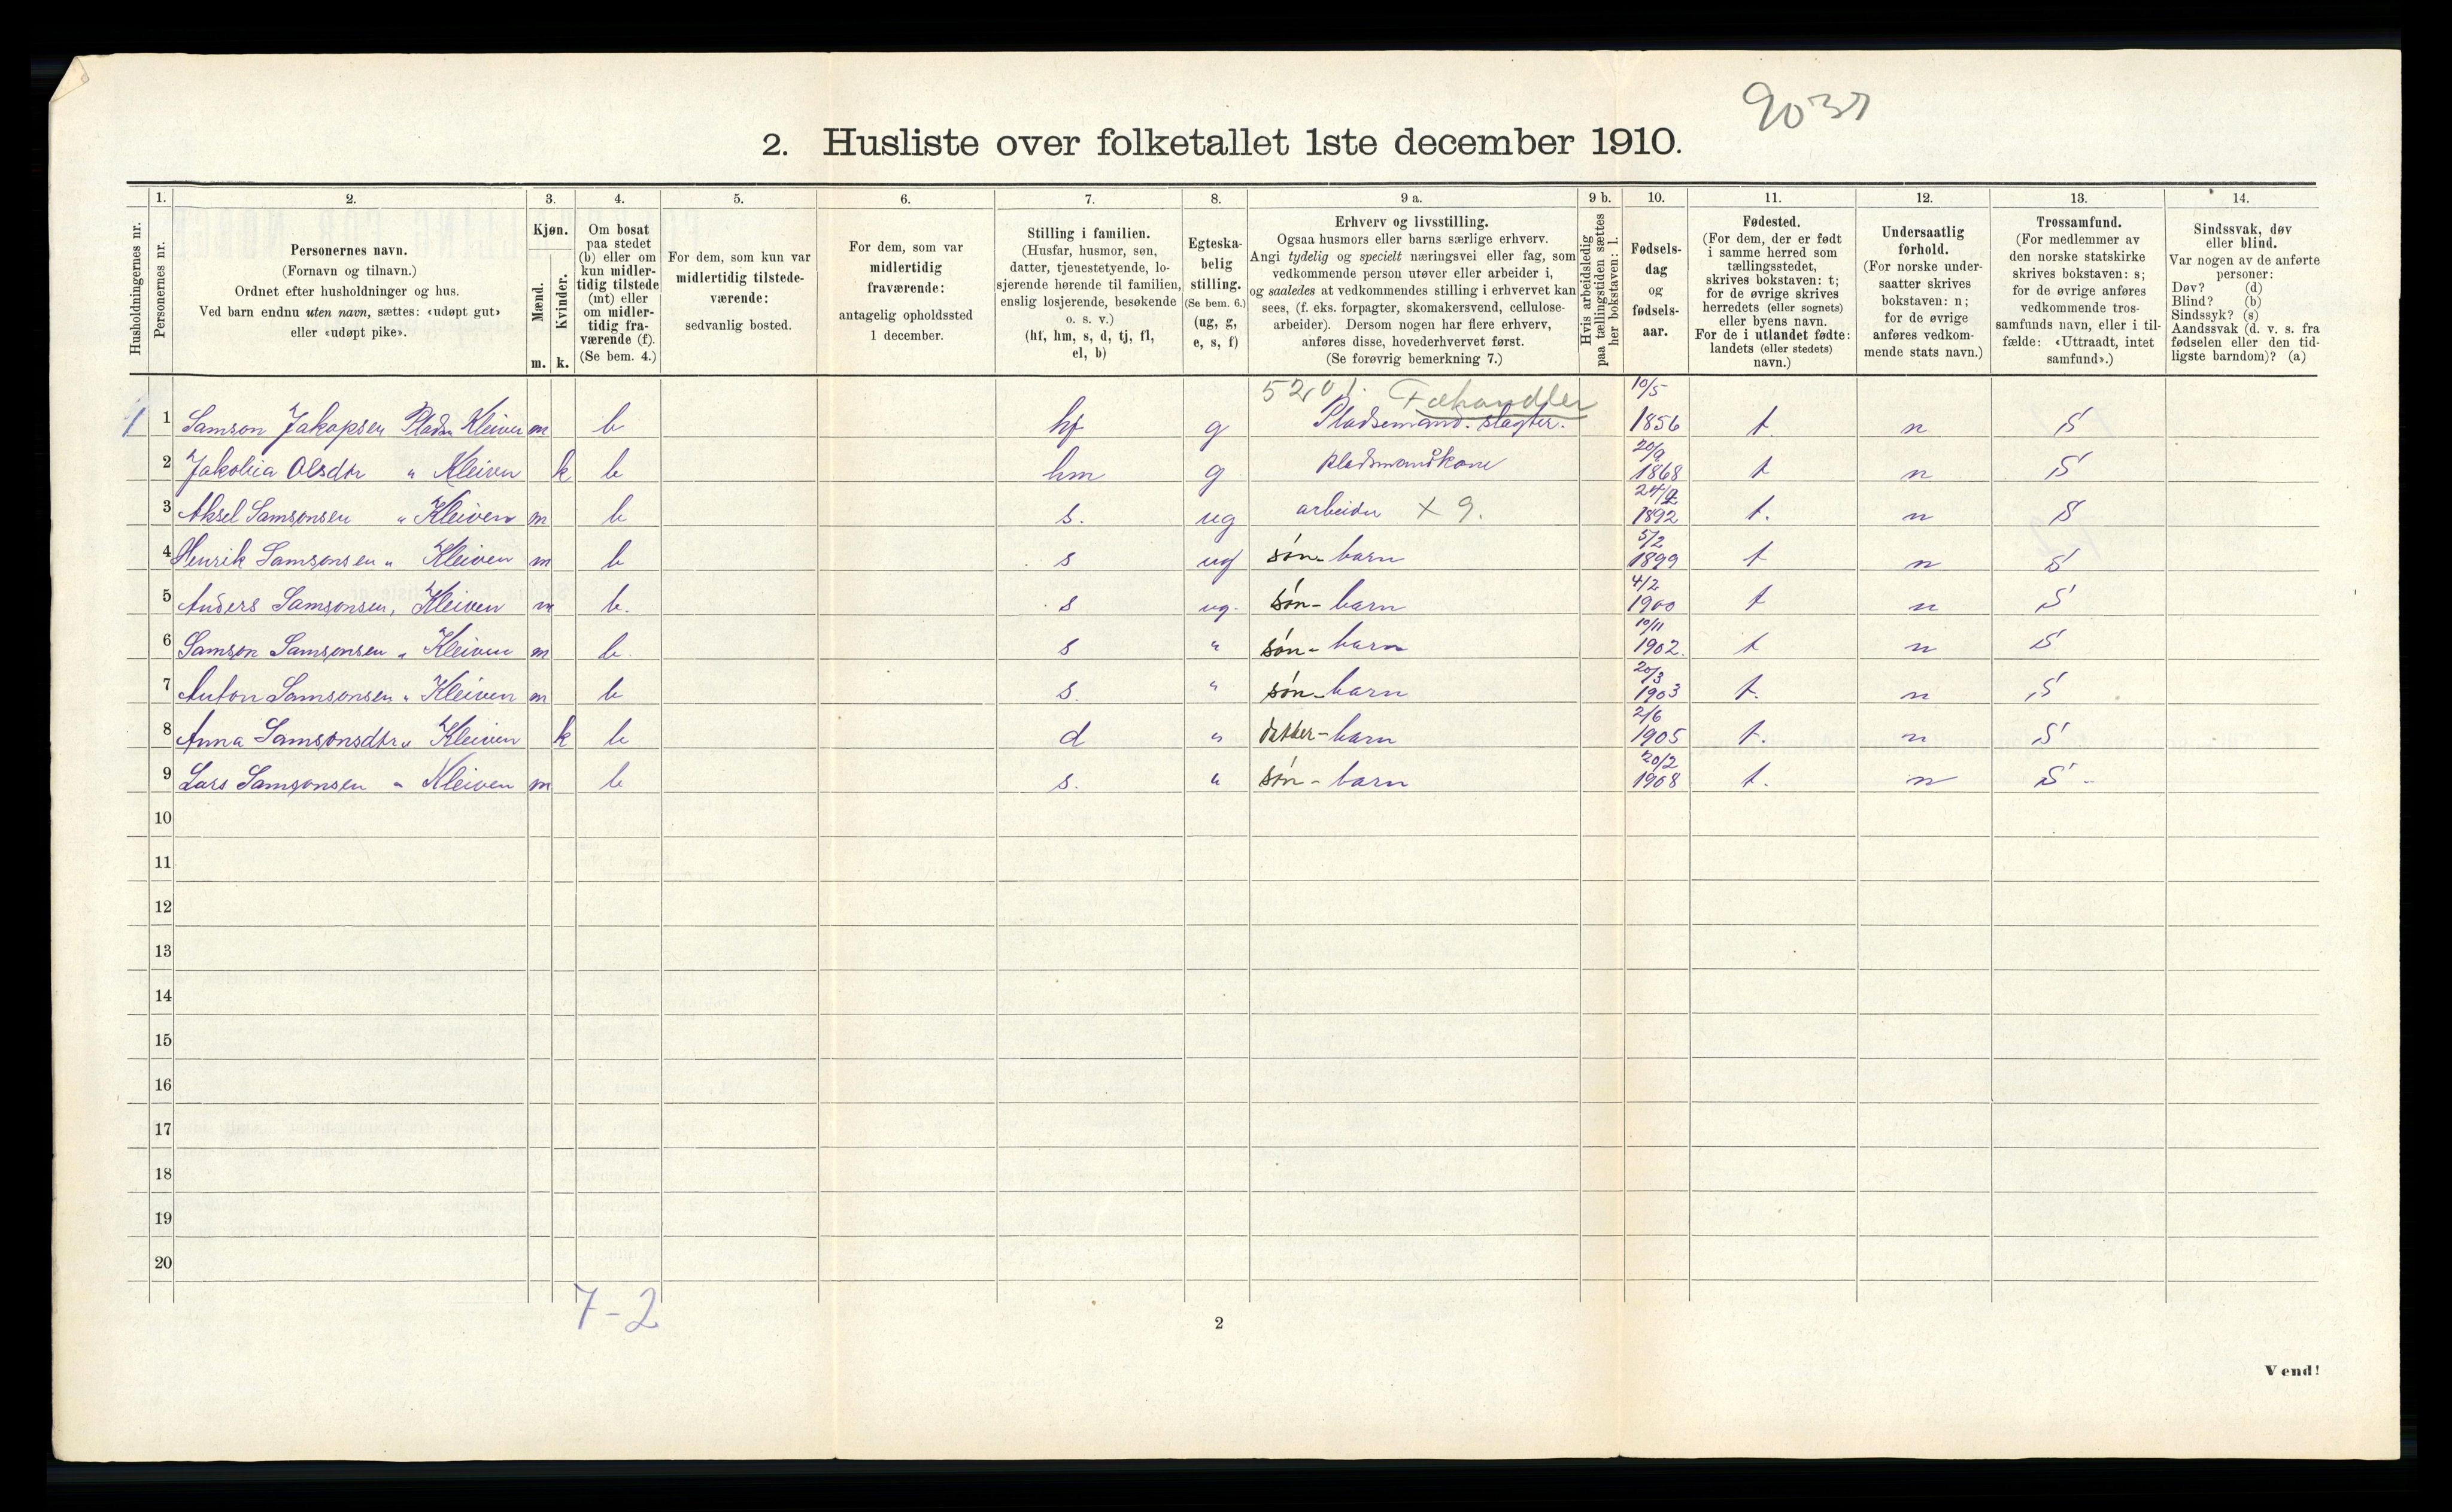 9037
2. Husliste over folketallet 1ste december 1910.
Husholdningernes nr.
1.
Personernes nr.
2.
Personernes navn.
(Fornavn og tilnavn.)
Ordnet efter husholdninger og hus.
Ved barn endnu uten navn, sættes: «udøpt gut»
eller «udøpt pike».
3.
Kjøn.
Mænd.
Kvinder.
m. k.
4.
Om bosat
paa stedet
(b) eller om
kun midler-
tidig tilstede
(mt) eller
om midler-
tidig fra-
værende (f).
(Se bem. 4.)
5.
For dem, som kun var
midlertidig tilstede-
værende:
sedvanlig bosted.
6.
For dem, som var
midlertidig
fraværende:
antagelig opholdssted
1 december.
7.
Stilling i familien.
(Husfar, husmor, søn,
datter, tjenestetyende, lo-
sjerende hørende til familien,
enslig losjerende, besøkende
o. s. v.)
(hf, hm, s, d, tj, fl,
el, b)
8.
Egteska-
belig
stilling.
(Se bem. 6.)
(ug, g,
e, s, f)
9 a.
Erhverv og livsstilling.
Ogsaa husmors eller barns særlige erhverv.
Angi tydelig og specielt næringsvei eller fag, som
vedkommende person utøver eller arbeider i,
og saaledes at vedkommendes stilling i erhvervet kan
sees, (f. eks. forpagter, skomakersvend, cellulose-
arbeider). Dersom nogen har flere erhverv,
anføres disse, hovederhvervet først.
(Se forøvrig bemerkning 7.)
9 b.
Hvis arbeidsledig
paa tællingstiden sættes
her bokstaven: l.
10.
Fødsels-
dag
og
fødsels-
aar.
11.
Fødested.
(For dem, der er født
i samme herred som
tællingsstedet,
skrives bokstaven: t;
for de øvrige skrives
herredets (eller sognets)
eller byens navn.
For de i utlandet fødte:
landets (eller stedets)
navn.)
12.
Undersaatlig
forhold.
(For norske under-
saatter skrives
bokstaven: n;
for de øvrige
anføres vedkom-
mende stats navn.)
13.
Trossamfund.
(For medlemmer av
den norske statskirke
skrives bokstaven: s;
for de øvrige anføres
vedkommende tros-
samfunds navn, eller i til-
fælde: «Uttraadt, intet
samfund».)
14.
Sindssvak, døv
eller blind.
Var nogen av de anførte
personer:
Døv? (d)
Blind? (b)
Sindssyk? (s)
Aandssvak (d. v. s. fra
fødselen eller den tid-
ligste barndom)? (a)
520 Fæhandler 10/5
1 1 Samson Jakopsen Plads Kleiven m b hf g Pladsemand. slagter. 1856 t n S
20/9
2 Olsdtr " Kleiven k b hm g pladsmandkone 1868 t n S
24/9
3 Aksel Samsonsen " Kleiven m b s. ug arbeider X 9. 1892 t. n S
5/2
4 Henrik Samsonsen " Kleiven m b s ug søn - barn 1899 t n S
4/2
5 Anders Samsonsen, Kleiven m b. s ug. søn - barn 1900 t n S
10/11
6 Samson Samsonsen " Kleiven m b. s " søn - barn 1902. t n S
20/3
7 Anton Samsonsen " Kleiven m b s. " søn - barn 1903 t. n S
2/6
8 Anna Samsonsdtr " Kleiven k b d " datter - barn 1905 t. n S
20/2
9 Lars Samsonsen " Kleiven m b s. " søn - barn 1908 t. n S -
10
11
12
13
14
15
16
17
18
19
20
7 - 2
2
Vend!